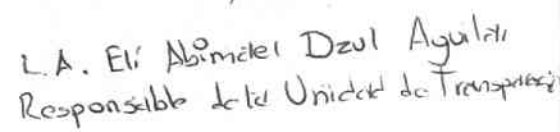 L.A. Elí Abimelel Dzul Aguilar
Responsable de la Unidad de Transparencia